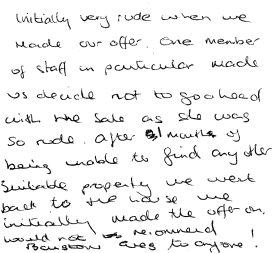 initially very rude when we
made our offer. One member
of staff in particular made
us decide not to go ahead
with the sale as she was
so rude. After months of
being unable to find any other
suitable property we went
back to the house we
initially made the offer on.
would not recommend
to anyone!